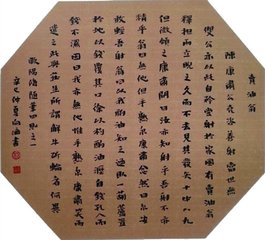 賣油翁
陳康肅公堯咨善射當世無
雙公亦以此自矜嘗射於家圃有賣油翁
釋擔而立睨之久而不去見其發矢十中八九
但微頷之康肅問曰汝亦知射乎吾射不亦
精乎翁曰無他但手熟爾康肅忿然曰爾安
敢輕吾射翁曰以我酌油知之乃取一葫蘆置
於地以錢覆其口徐以杓酌油瀝自錢孔入而
錢不濕因曰我亦無他惟手熟爾康肅笑而
遣之此與莊生所謂解牛斫輪者何異
歐陽脩隨筆四則之一
辛巳仲夏 書